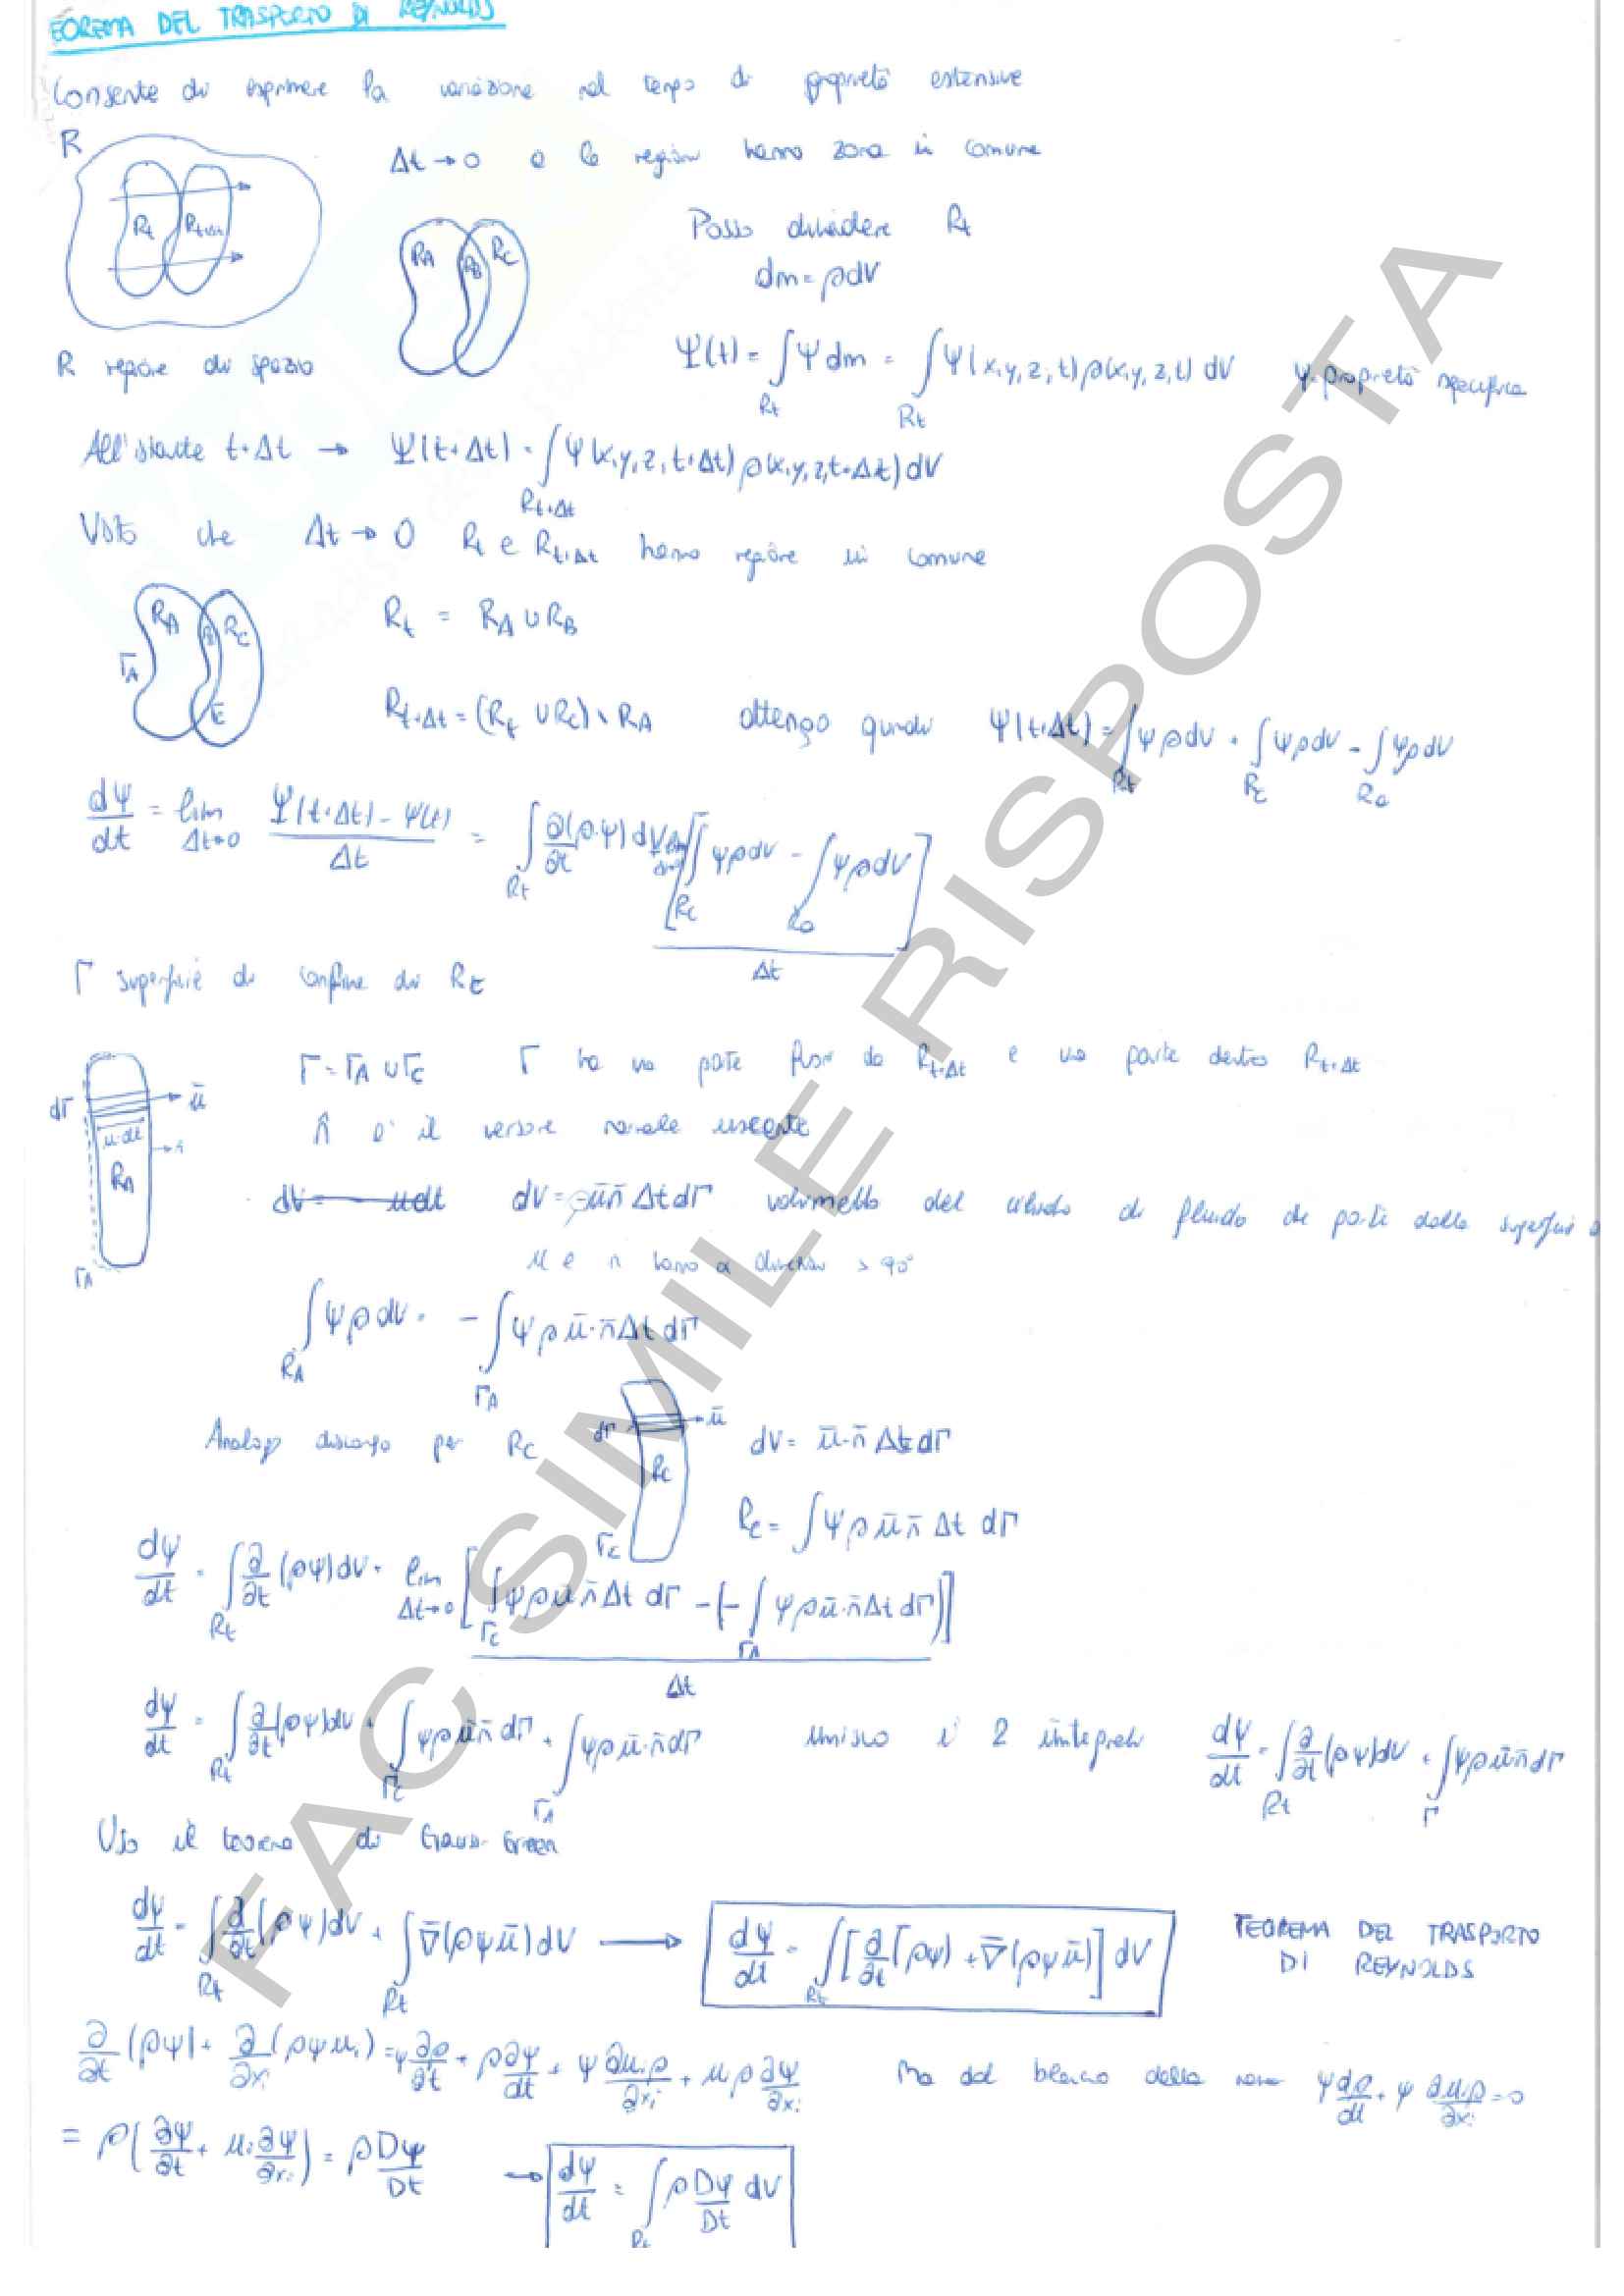 TEOREMA DEL TRASPORTO DI REYNOLDS
Consente di esprimere la variazione nel tempo di proprietà estensive
R
Rt Rt+Δt
Δt → 0 le regioni hanno zona in comune
RA RB RC
Posso dividere Rt
dm = ρdV
R regione di spazio
Ψ(t) = ∫Rt Ψ dm = ∫Rt Ψ(x,y,z,t)ρ(x,y,z,t) dV ψ proprietà specifica
All'istante t+Δt → Ψ(t+Δt) = ∫Rt+Δt Ψ(x,y,z,t+Δt)ρ(x,y,z,t+Δt)dV
Visto che Δt → 0 Rt e Rt+Δt hanno regione in comune
RA RB RC
ΓA
Rt = RA ∪ RB
Rt+Δt = (Rt ∪ RC) \ RA ottengo quindi Ψ(t+Δt) = ∫Rt ψρdV + ∫RC ψρdV - ∫RA ψρdV
dΨ/dt = lim Δt→0 (Ψ(t+Δt) - Ψ(t))/Δt = ∫Rt ∂(ρψ)/∂t dV + lim Δt→0 [∫RC ψρdV - ∫RA ψρdV]/Δt
Γ superficie di confine di Rt
dΓ ū
Γ = ΓA ∪ ΓC Γ ha una parte fuori da Rt+Δt e una parte dentro Rt+Δt
n̂ è il versore normale uscente
u·dt n
RA
ΓA
dV = -ū n̄ Δt dΓ volumetto del cilindro di fluido che parte dalla superficie
u e n hanno direzioni > 90°
∫RA ψρdV = -∫ΓA ψρ ū·n̄ Δt dΓ
Analogo discorso per RC
dΓ ū
RC
ΓC
dV = ū·n̄ Δt dΓ
RC = ∫ψρ ū n̄ Δt dΓ
dψ/dt = ∫Rt ∂/∂t (ρψ)dV + lim Δt→0 [∫ΓC ψρ ū n̄ Δt dΓ - (-∫ΓA ψρ ū·n̄ Δt dΓ)]/Δt
dψ/dt = ∫Rt ∂/∂t (ρψ)dV + ∫ΓC ψρ ū n̄ dΓ + ∫ΓA ψρ ū·n̄ dΓ unisco i 2 integrali dψ/dt = ∫Rt ∂/∂t (ρψ)dV + ∫Γ ψρ ū n̄ dΓ
Uso il teorema di Gauss-Green
dψ/dt = ∫Rt ∂/∂t (ρψ)dV + ∫Rt ∇̄(ρψū)dV → dψ/dt = ∫Rt [∂/∂t (ρψ) + ∇̄(ρψū)] dV TEOREMA DEL TRASPORTO
DI REYNOLDS
∂/∂t (ρψ) + ∂/∂xi (ρψui) = ψ ∂ρ/∂t + ρ ∂ψ/dt + ψ ∂uiρ/∂xi + uρ ∂ψ/∂xi Ma dal bilancio della massa ψ dρ/dt + ψ ∂uiρ/∂xi = 0
= ρ(∂ψ/∂t + ui ∂ψ/∂xi) = ρ Dψ/Dt → dψ/dt = ∫Rt ρ Dψ/Dt dV
FAC SIMILE RISPOSTA